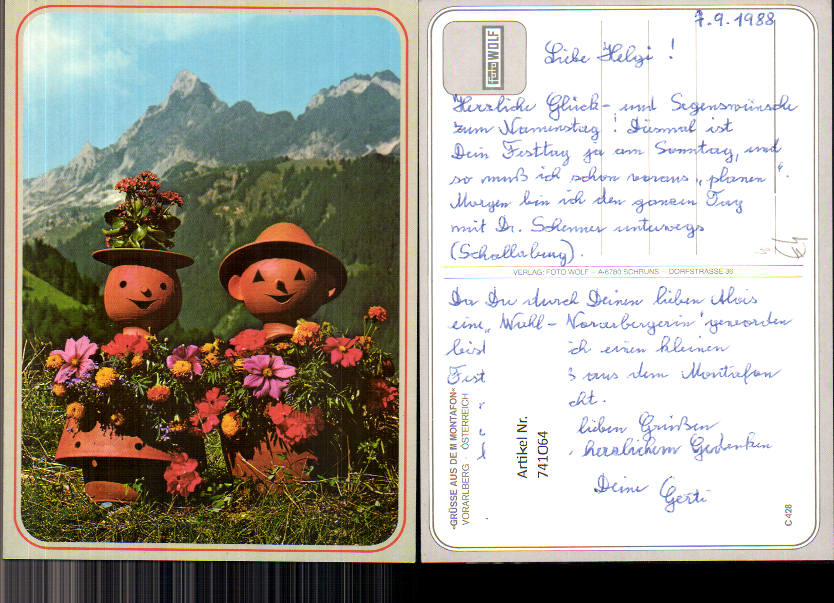 7.9.1988
foto WOLF
Liebe Helgi!
Herzliche Glück- und Segenswünsche
zum Namenstag! Diesmal ist
Dein Festtag ja am Sonntag, und
so muß ich schon voraus „planen“.
Morgen bin ich den ganzen Tag
mit Dr. Schenner unterwegs
(Schallaburg).
VERLAG: FOTO WOLF – A-6780 SCHRUNS – DORFSTRASSE 36
Da Du durch Deinen lieben Alois
eine „Wahl-Vorarlbergerin“ geworden
bist ich einen kleinen
Fest aus dem Montafon
cht.
lieben Grüßen
herzlichem Gedenken
Deine Gerti
»GRÜSSE AUS DEM MONTAFON«
VORARLBERG · ÖSTERREICH
Artikel Nr.
741064
C 428